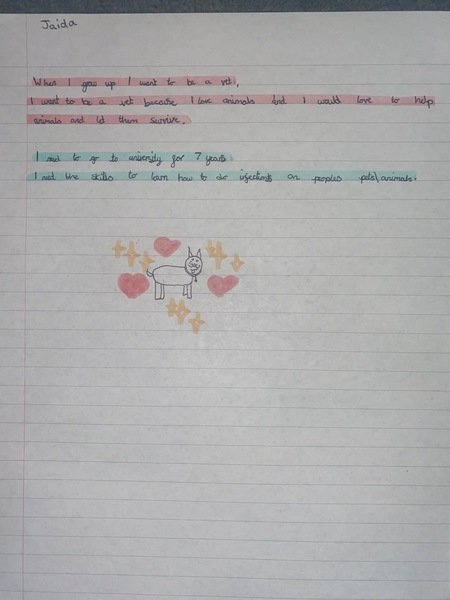 Jaida
When I grow up I want to be a vet.
I want to be a vet because I love animals and I would love to help
animals and let them survive.
I need to go to university for 7 years
I need the skills to learn how to do injections on peoples pets\animals.